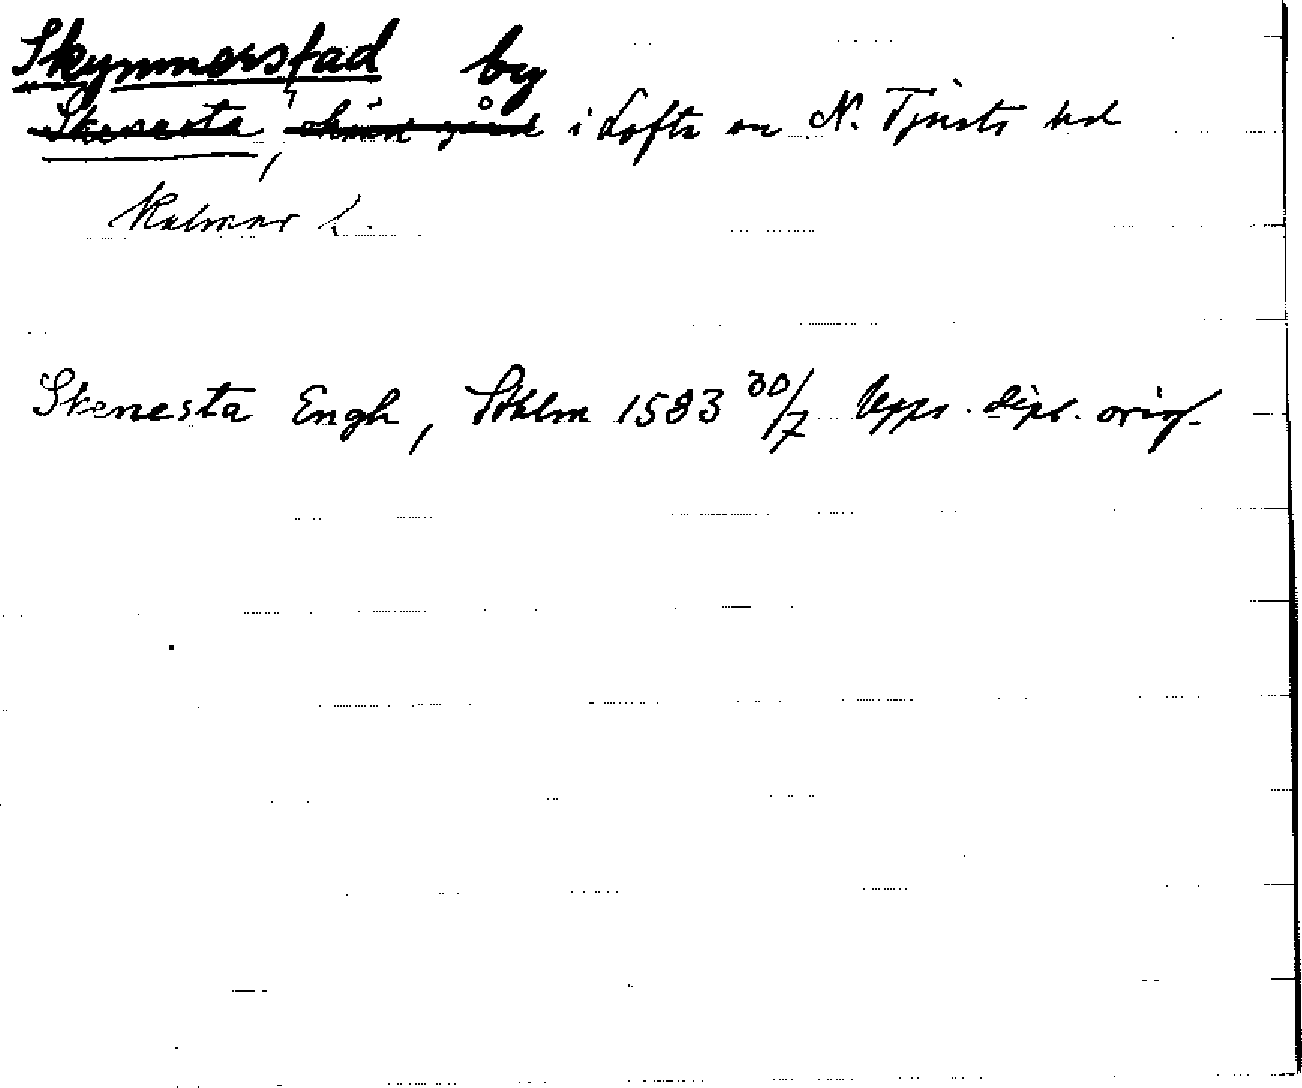 Skymmerstad by
Skenesta, okänd gård i Lofta sn N. Tjusts hd
Kalmar L.
Skenesta Engh, Sthlm 1583 30/7 Upps. dipl. orig.